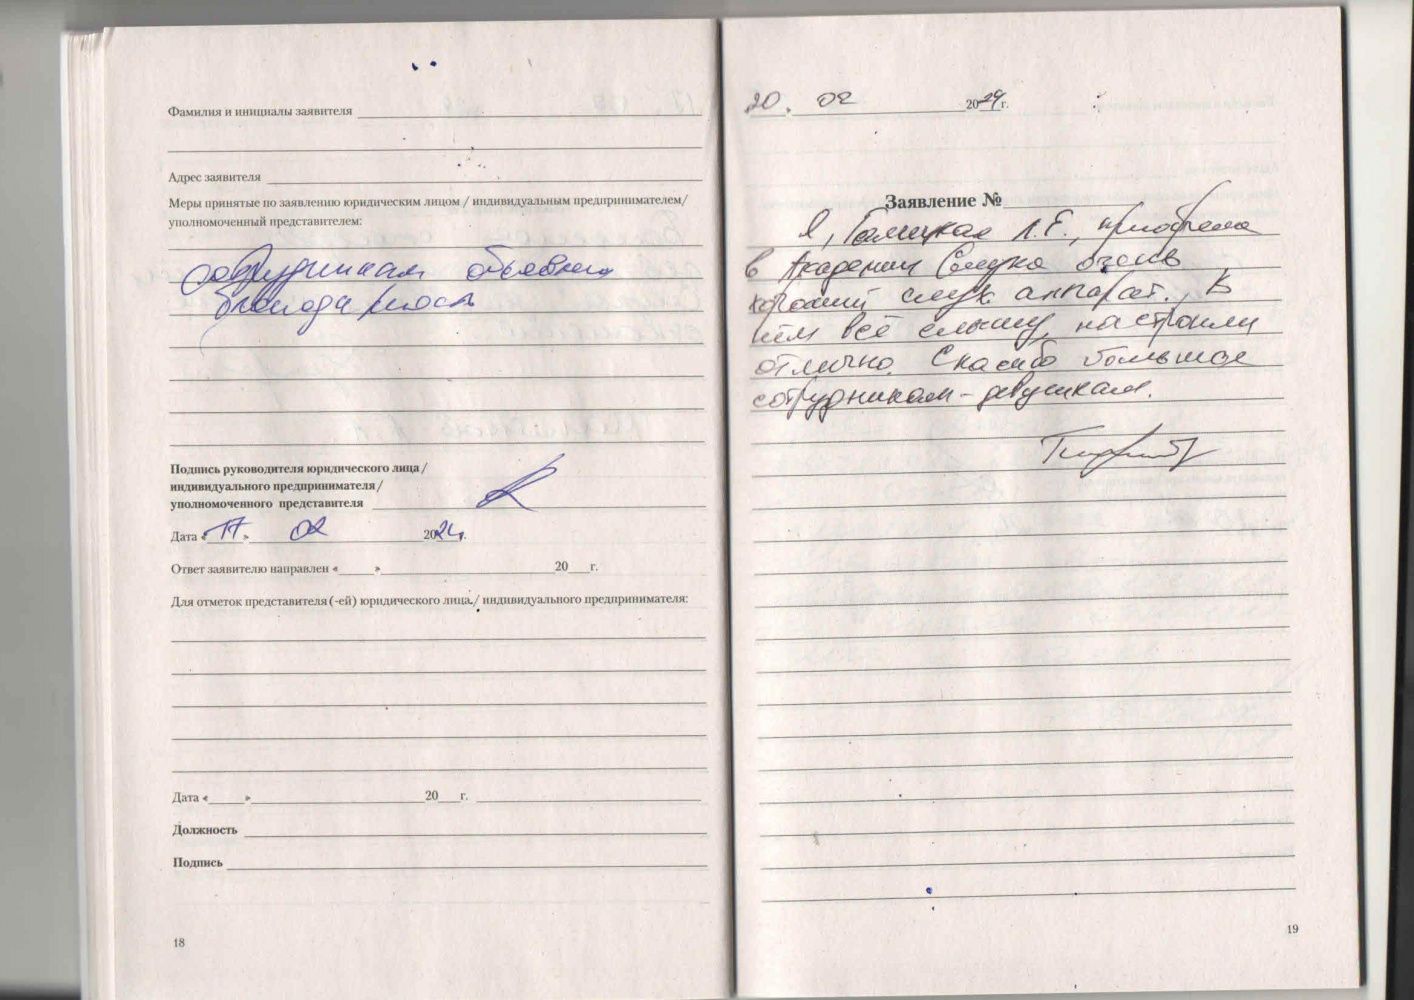 Фамилия и инициалы заявителя
Адрес заявителя
Меры принятые по заявлению юридическим лицом / индивидуальным предпринимателем/
уполномоченный представителем:
сотрудникам объявлена
благодарность
Подпись руководителя юридического лица /
индивидуального предпринимателя /
уполномоченного представителя
Дата « 17 » 02 2024г.
Ответ заявителю направлен « » 20 г.
Для отметок представителя (-ей) юридического лица / индивидуального предпринимателя:
Дата « » 20 г.
Должность
Подпись
18
20. 02 2024г.
Заявление №
Я, Л.Е., приобрела
в Академии Слуха очень
хороший слух. аппарат. В
нём всё слышу, настроили
отлично. Спасибо большое
сотрудникам - девушкам.
19